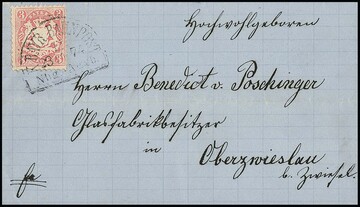 3 3
Hochwohlgeboren
Herrn Benedict v. Poschinger
Glasfabrikbesitzer
in
Oberzwieslau
b. Zwiesel.